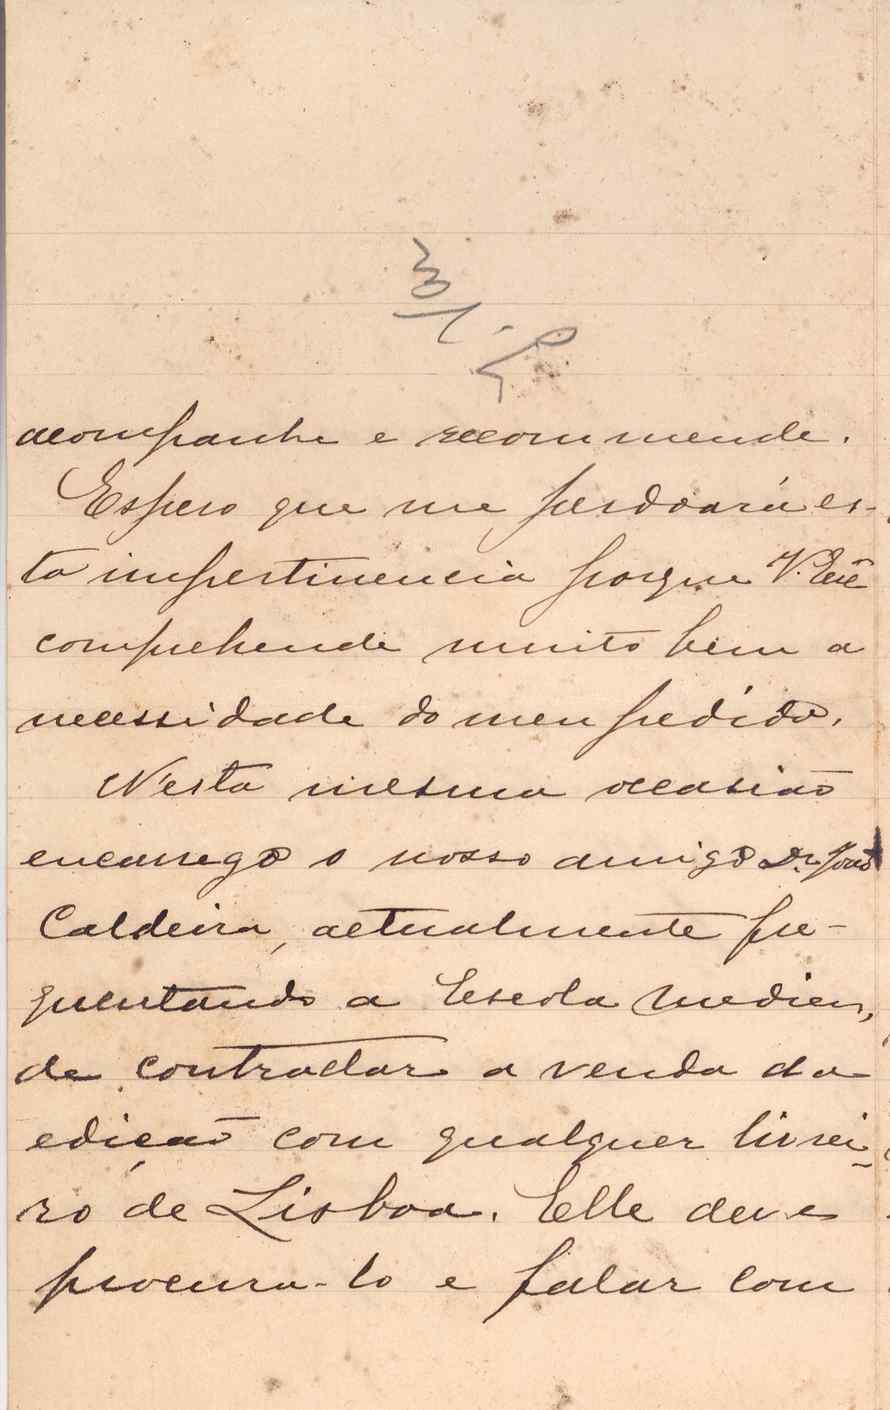 acompanhe e recommende.
Espero que me perdoará es-
ta impertinencia porque V. Exª
comprehende muito bem a
necessidade do meu pedido.
Nesta mesma occasião
encarrego o nosso amigo Dr. João
Caldeira, actualmente fre-
quentando a Escola medica,
de contractar a venda da
edição com qualquer livrei-
ro de Lisboa. Elle deve
procura-lo e falar com